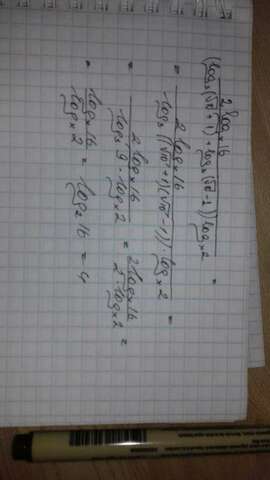 2 log_x 16 / ((log_3(√10 + 1) + log_3(√10 - 1)) log_x 2) =
= 2 log_x 16 / (log_3((√10 + 1)(√10 - 1)) · log_x 2) =
= 2 log_x 16 / (log_3 9 · log_x 2) = 2 log_x 16 / (2 · log_x 2) =
= log_x 16 / log_x 2 = log_2 16 = 4